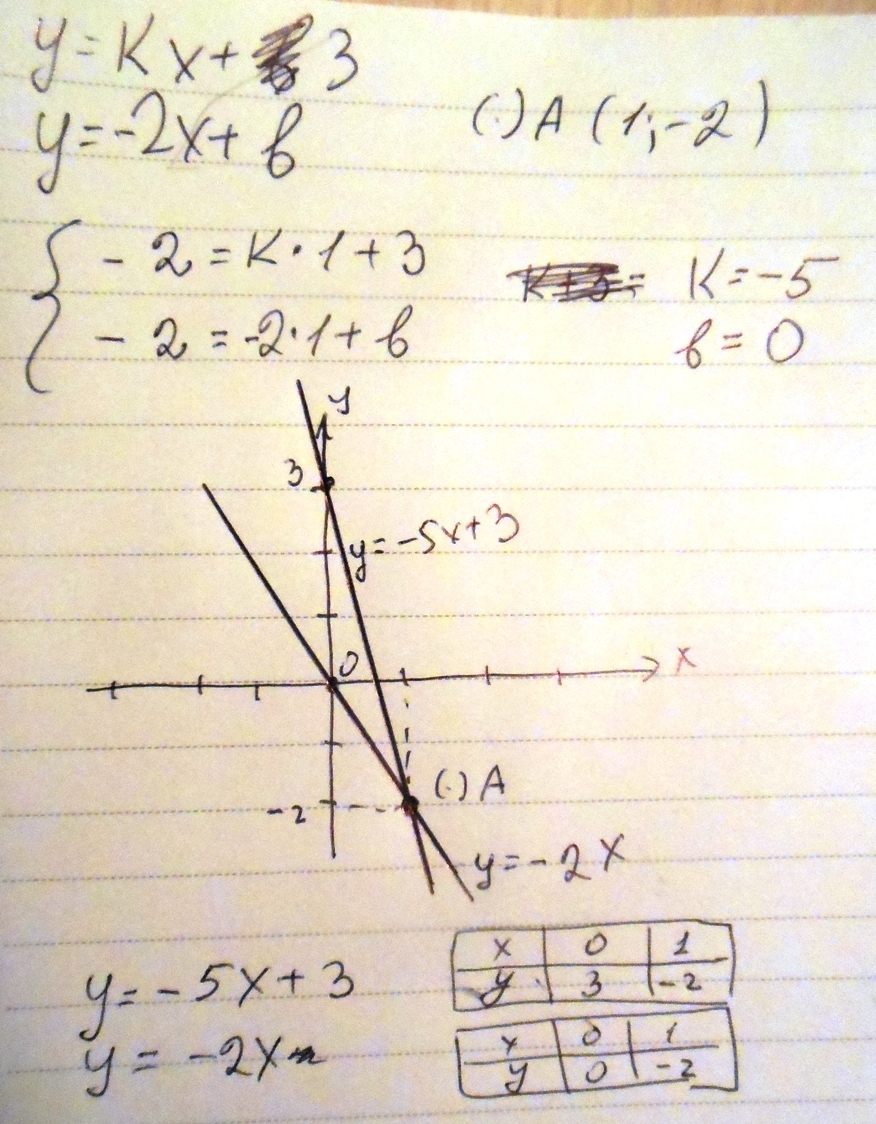 y = Kx + 3
y = -2x + b
(·) A (1; -2)
- 2 = K·1 + 3
- 2 = -2·1 + b
K = -5
b = 0
y
3
y = -5x + 3
0
x
(·) A
-2
y = -2x
y = -5x + 3
y = -2x
x 0 1
y 3 -2
x 0 1
y 0 -2